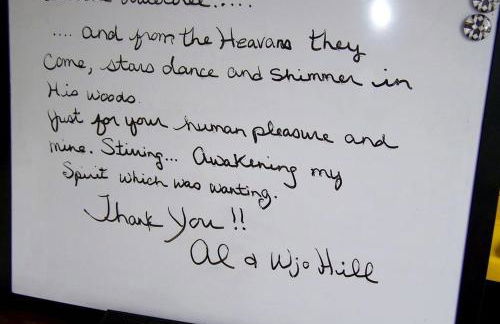 .... and from the Heavans they
Come, stars dance and shimmer in
His woods.
Just for your human pleasure and
mine. Stiring... Awakening my
Spirit which was wanting.
Thank You!!
Al & Wjo Hill